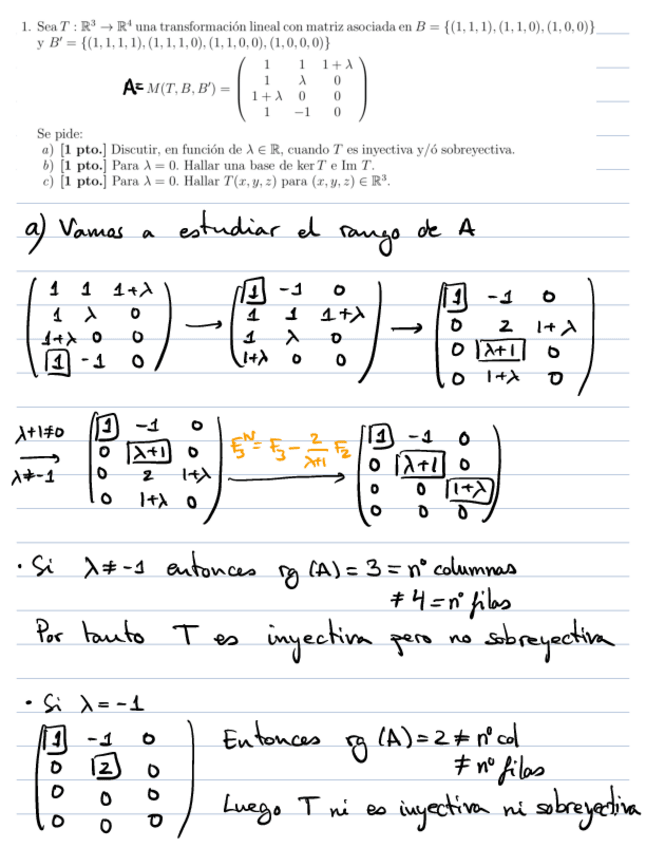 1. Sea T : ℝ³ → ℝ⁴ una transformación lineal con matriz asociada en B = {(1, 1, 1), (1, 1, 0), (1, 0, 0)}
y B′ = {(1, 1, 1, 1), (1, 1, 1, 0), (1, 1, 0, 0), (1, 0, 0, 0)}
A= M(T, B, B′) = ( 1 1 1 + λ
1 λ 0
1 + λ 0 0
1 −1 0 )
Se pide:
a) [1 pto.] Discutir, en función de λ ∈ ℝ, cuando T es inyectiva y/ó sobreyectiva.
b) [1 pto.] Para λ = 0. Hallar una base de ker T e Im T.
c) [1 pto.] Para λ = 0. Hallar T(x, y, z) para (x, y, z) ∈ ℝ³.
a) Vamos a estudiar el rango de A
( 1 1 1+λ ) → ( 1 -1 0 ) → ( 1 -1 0 )
( 1 λ 0 ) ( 1 1 1+λ ) ( 0 2 1+λ )
( 1+λ 0 0 ) ( 1 λ 0 ) ( 0 λ+1 0 )
( 1 -1 0 ) ( 1+λ 0 0 ) ( 0 1+λ 0 )
λ+1≠0 → λ≠-1
( 1 -1 0 ) F₃ᴺ = F₃ - 2/(λ+1) F₂ → ( 1 -1 0 )
( 0 λ+1 0 ) ( 0 λ+1 0 )
( 0 2 1+λ ) ( 0 0 1+λ )
( 0 1+λ 0 ) ( 0 0 0 )
· Si λ ≠ -1 entonces rg (A) = 3 = nº columnas
≠ 4 = nº filas
Por tanto T es inyectiva pero no sobreyectiva
· Si λ = -1
( 1 -1 0 ) Entonces rg (A) = 2 ≠ nº col
( 0 2 0 ) ≠ nº filas
( 0 0 0 ) Luego T ni es inyectiva ni sobreyectiva
( 0 0 0 )